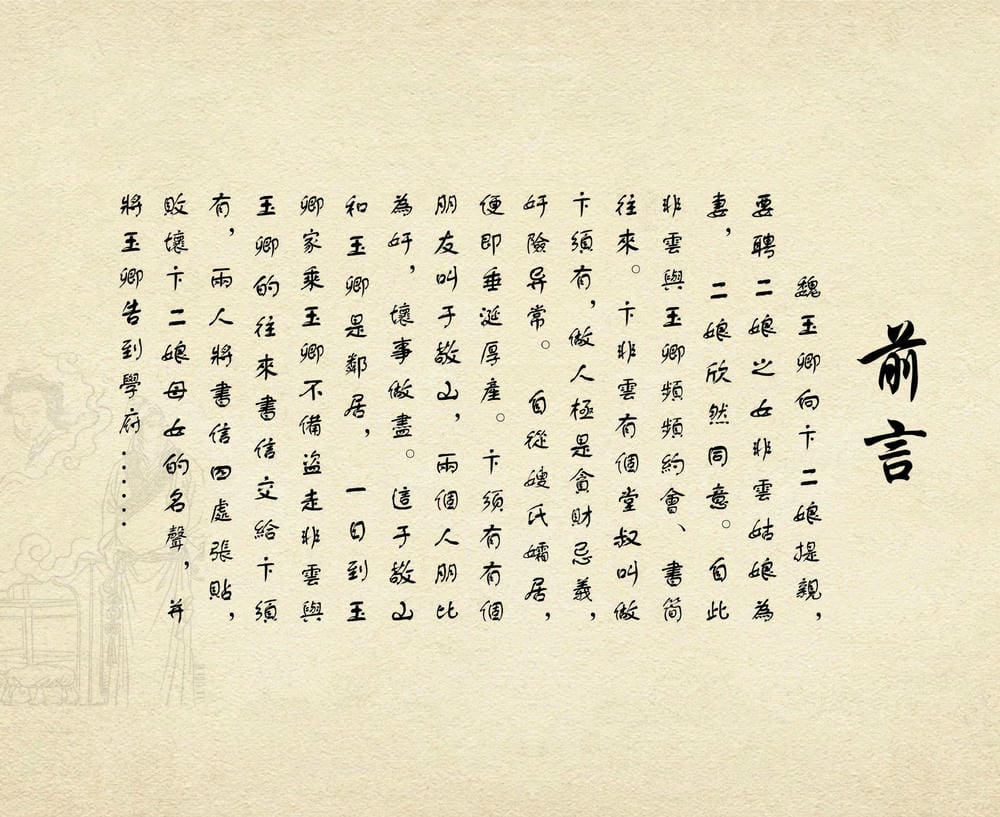 前言
魏玉卿向卞二娘提親，
要聘二娘之女非雲姑娘為
妻，二娘欣然同意。自此
非雲與玉卿頻頻約會、書简
往來。卞非雲有個堂叔叫做
卞須有，做人極是貪財忌義，
奸險异常。自從嫂氏孀居，
便即垂涎厚產。卞須有有個
朋友叫于敖山，兩個人朋比
為奸，壞事做盡。這于敖山
和玉卿是鄰居，一日到玉
卿家乘玉卿不備盜走非雲與
玉卿的往來書信交給卞須
有，兩人將書信四處張貼，
敗壞卞二娘母女的名聲，并
將玉卿告到學府……